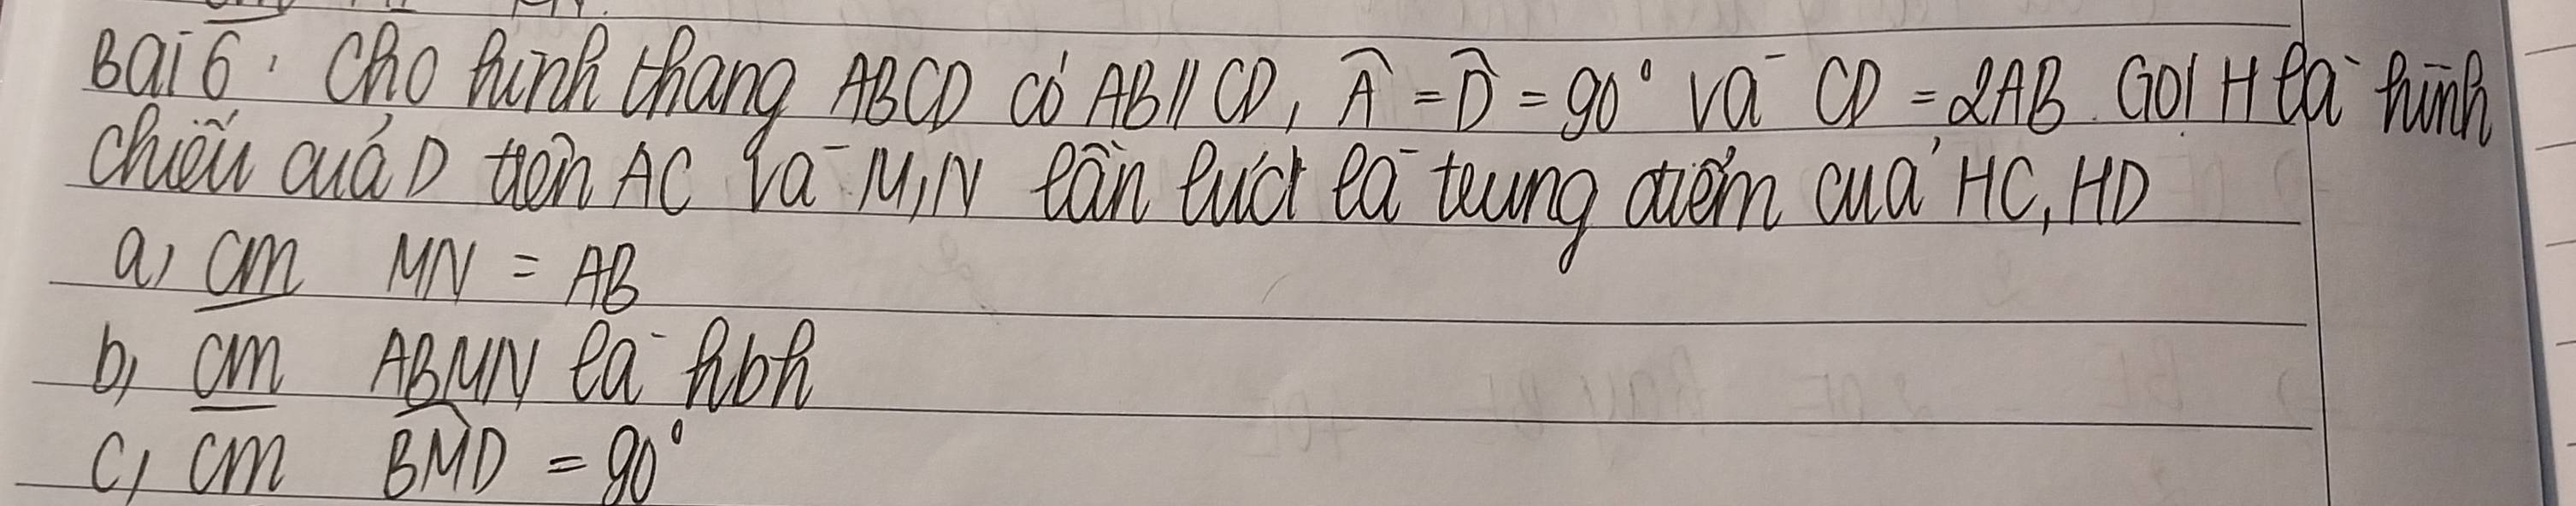 Bài 6: Cho hình thang ABCD có AB // CD, Â = D̂ = 90° và CD = 2AB. Gọi H là hình
chiếu của D trên AC và M, N lần lượt là trung điểm của HC, HD
a, cm MN = AB
b, cm ABMN là hbh
c, cm \widehat{BMD} = 90°